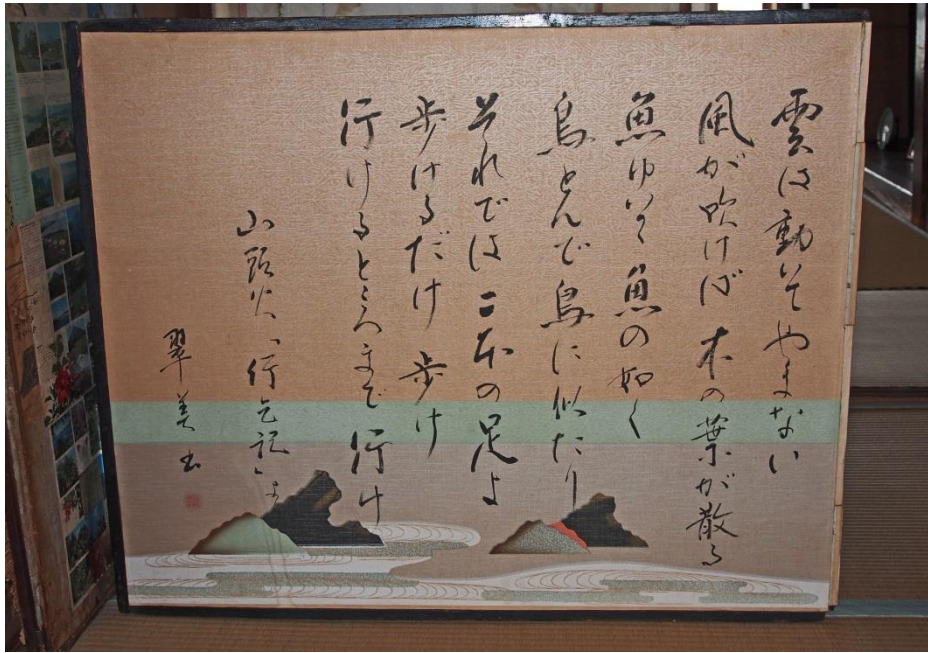 雲は動いてやまない
風が吹けば木の葉が散る
魚ゆいて魚の如く
鳥とんで鳥に似たり
それでは二本の足よ
歩けるだけ歩け
行けるところまで行け
山頭火「行乞記」より
翠美書